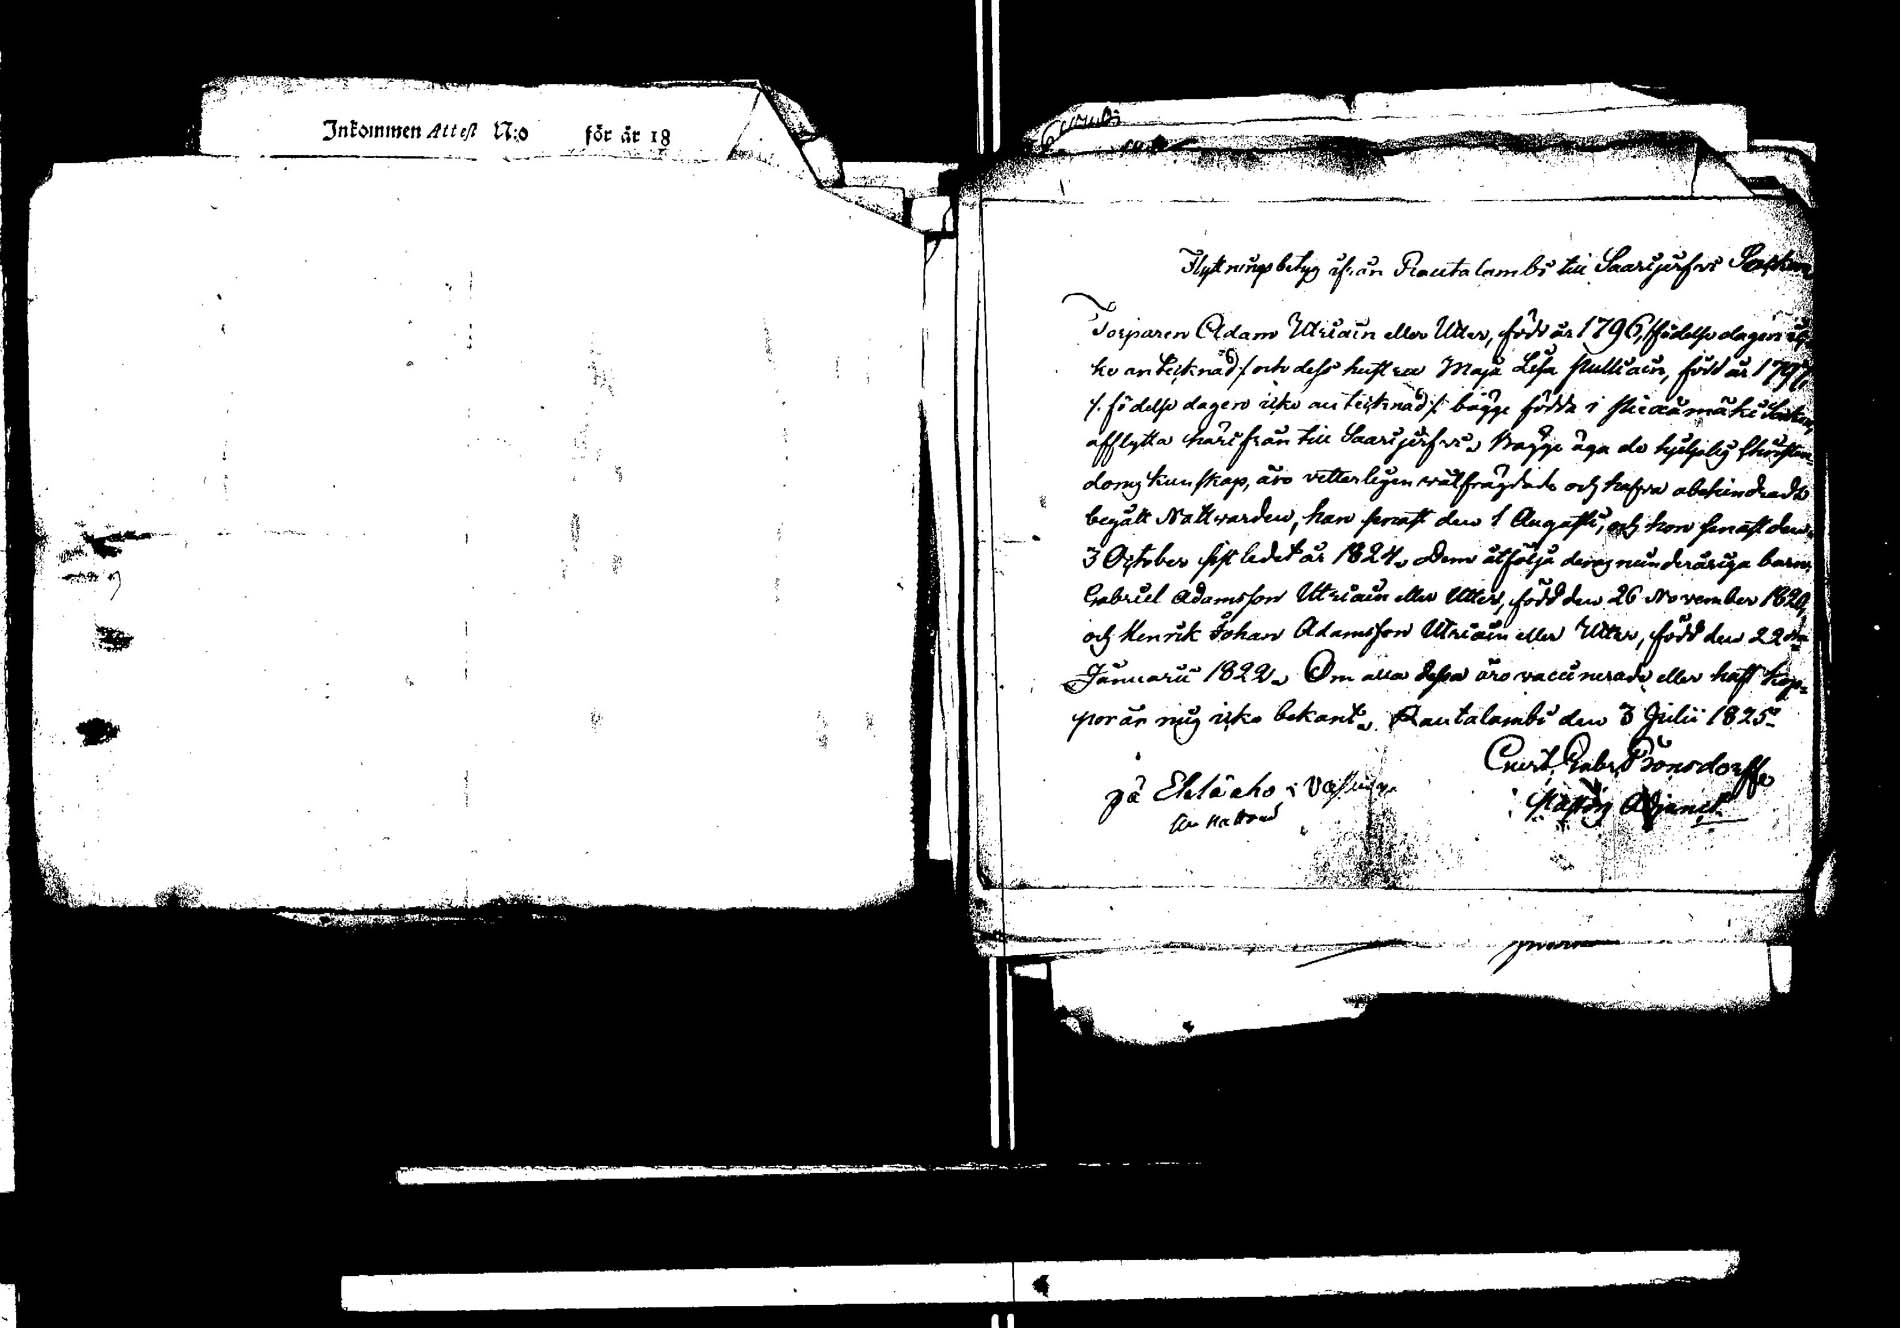 Inkommen Attest N:o för år 18
Flyttningsbetyg ifrån Rautalambi till Saarijerfvi Socken
Torparen Adam Utriain eller Utter, född år 1796, /: födelse dagen ic-
ke antecknad :/ och dess hustru Maja Lisa Pulliain, född år 1797,
/: födelse dagen icke antecknad :/ bägge födda i Piexämäki Socken,
afflytta härifrån till Saarijerfvi. Bägge äga de hjelpelig Christen-
doms kunskap, äro vetterligen välfrägdade och hafva obehindradt
begått Nattvarden, han senast den 1 Augusti, och hon senast den
3 October sist ledet år 1824. Dem åtfölja deras minderåriga barn,
Gabriel Adamsson Utriain eller Utter, född den 26 November 1820,
och Henrik Johan Adamsson Utriain eller Utter, född den 22dra
Januarii 1822. Om alla dessa äro vaccinerade eller haft kop-
por är mig icke bekant. Rautalambi den 3 Julii 1825.
Bonsdorff
på
Adjunct